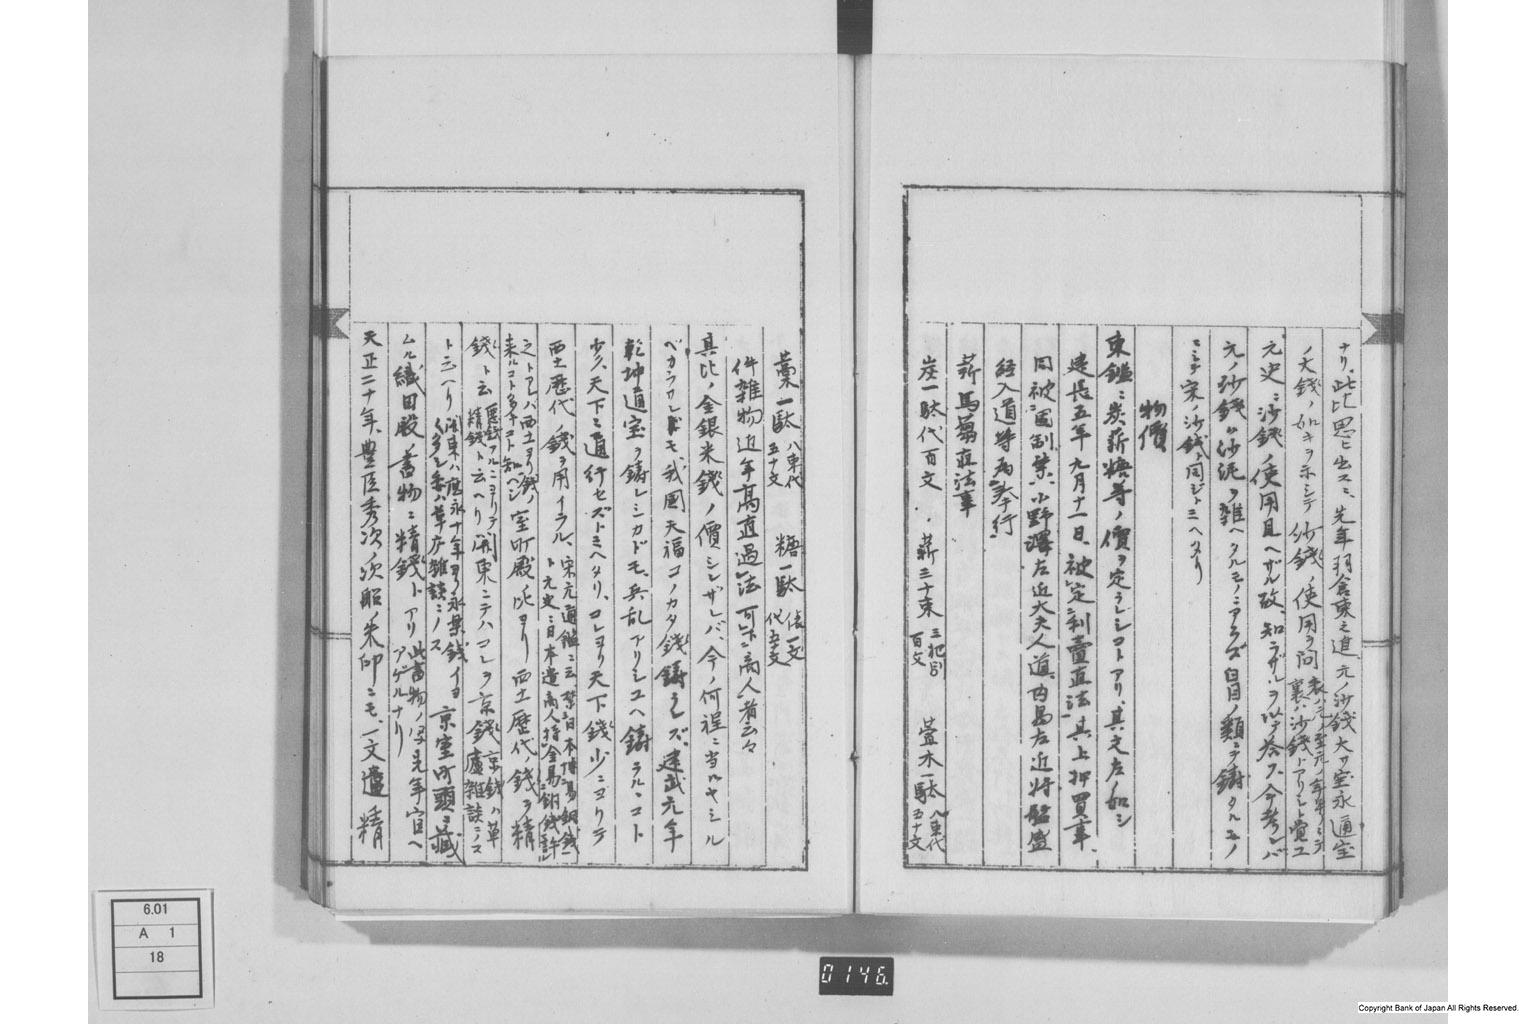 ナリ、此比思ヒ出スニ、先年羽倉東之進、元ノ沙錢大サ宝永通宝
ノ大錢ノ如キヲ示シテ沙錢ノ使用ヲ問
元史ニ沙錢ノ使用見ヘザル故、知ラザルヲ以テ答フ、今考レバ
元ノ沙錢ハ沙泥ヲ雑ヘタルモノニアラズ 類ニテ鑄タルモノ
ニシテ宋ノ沙錢ト同ジト云ヘタリ
物價
東鑑ニ炭薪糠等ノ價ヲ定ラレシコトアリ、其文左ノ如シ
建長五年九月十一日、被定利賣直法、其上押買事
同被固制禁、小野澤左近大夫入道、内島左近将監盛
経入道等為奉行
薪馬蒭直法事
炭一駄代百文、薪三十束 三把別百文 萱木一駄 八束代五十文
藁一駄 八束代五十文 糠一駄 俵一文代五十文
件雑物近年高直過法可下商人者云々
其比ノ金銀米錢ノ價シレザレバ、今ノ何程ニ当ルヤシル
ベカラザレドモ、我國天福コノカタ錢鑄ラレズ、建武元年
乾坤通宝ヲ鑄レシカドモ、兵乱アリシユヘ鑄ラルヽコト
少ク、天下ニ通行セズト云ヘタリ、コレヨリ天下錢少ニヨリテ
西土歴代ノ錢ヲ用イラル、宋元通鑑ニ云禁日本博易銅錢ト元史ニ日本遣商人持金易銅錢許
之トアレバ西土ヨリ錢ノ来ルコト多キコト知ベシ 室町殿ノ比ヨリ西土歴代ノ錢ヲ精
錢ト云 悪錢アルニヨリテ精錢ト云ヘリ 関東ニテハコレヲ京錢 京錢ハ草廬雑談ニノス
ト云ヘリ 関東ハ應永十年ヨリ永楽錢イヨ〱多シ委ハ草廬雑談ニノス 京室町頭ニ藏
ムル織田殿ノ書物ニ精錢トアリ 此書物ノ写先年官ヘアゲルナリ
天正二十年、豊臣秀次ノ次船ノ朱印ニモ、一文遣精
6.01
A 1
18
0146.
Copyright Bank of Japan All Rights Reserved.